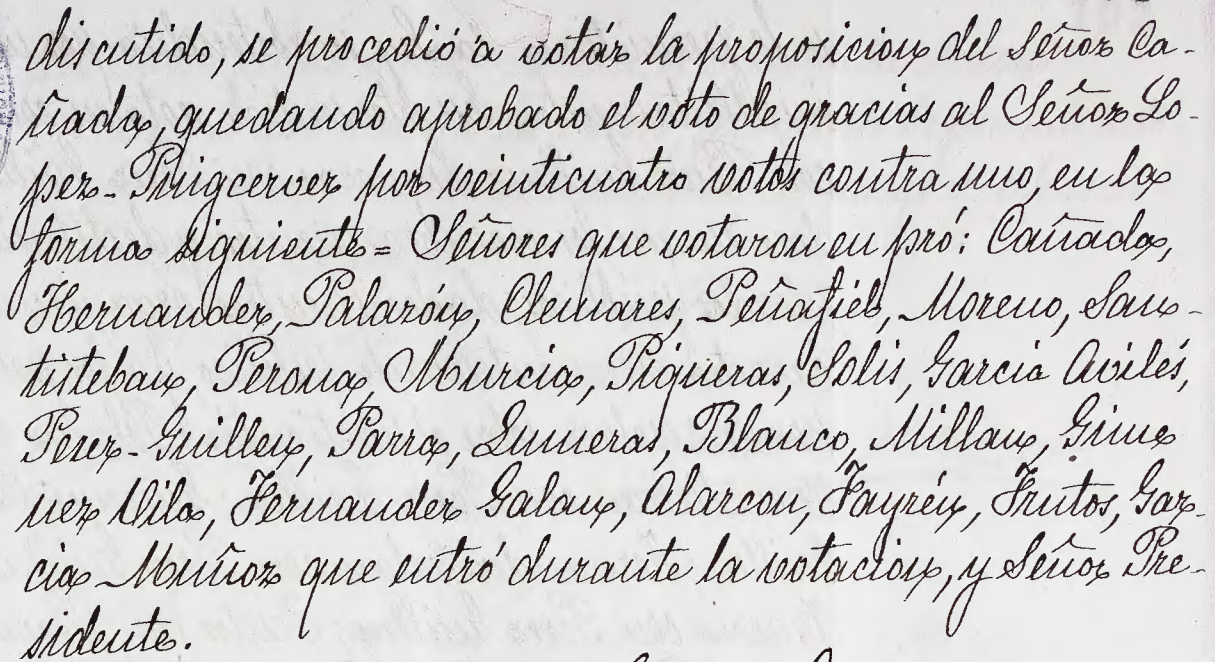 discutido, se procedió á votár la proposicion del Señor Ca-
ñada, quedando aprobado el voto de gracias al Señor Lo-
pez-Puigcerver por veinticuatro votos contra uno, en la
forma siguiente = Señores que votaron en pró: Cañada,
Hernandez, Palazón, Clemares, Peñafiel, Moreno, San-
tisteban, Perona, Murcia, Piqueras, Solis, Garcia Avilés,
Perez-Guillen, Parra, Lumeras, Blanco, Millan, Gime
nez Vila, Fernandez Galan, Alarcon, Fayrén, Frutos, Gar-
cia Muñoz que entró durante la votación, y Señor Pre-
sidente.